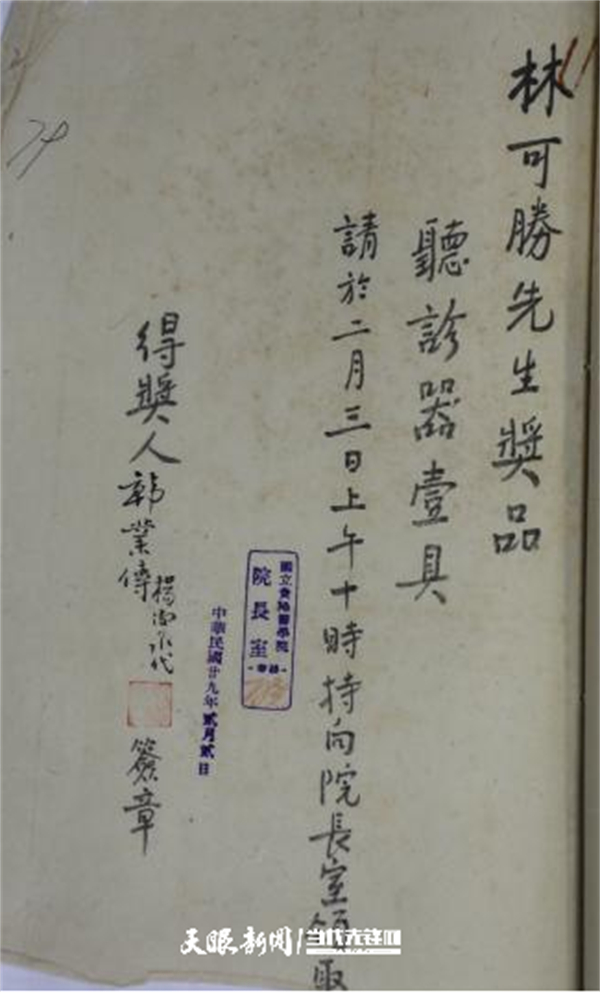 林可勝先生獎品
聽診器壹具
請於二月三日上午十時持向院長室領取
國立貴陽醫學院
院長室
中華民國廿九年貳月貳日
得獎人郭業傳
代
簽章
天眼新闻